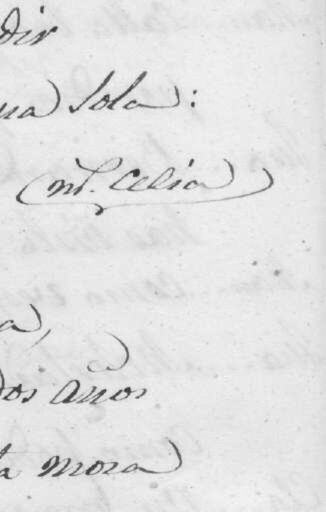 dir
ua sola:
(m.ª Celia)
a,
dos años
ta mora